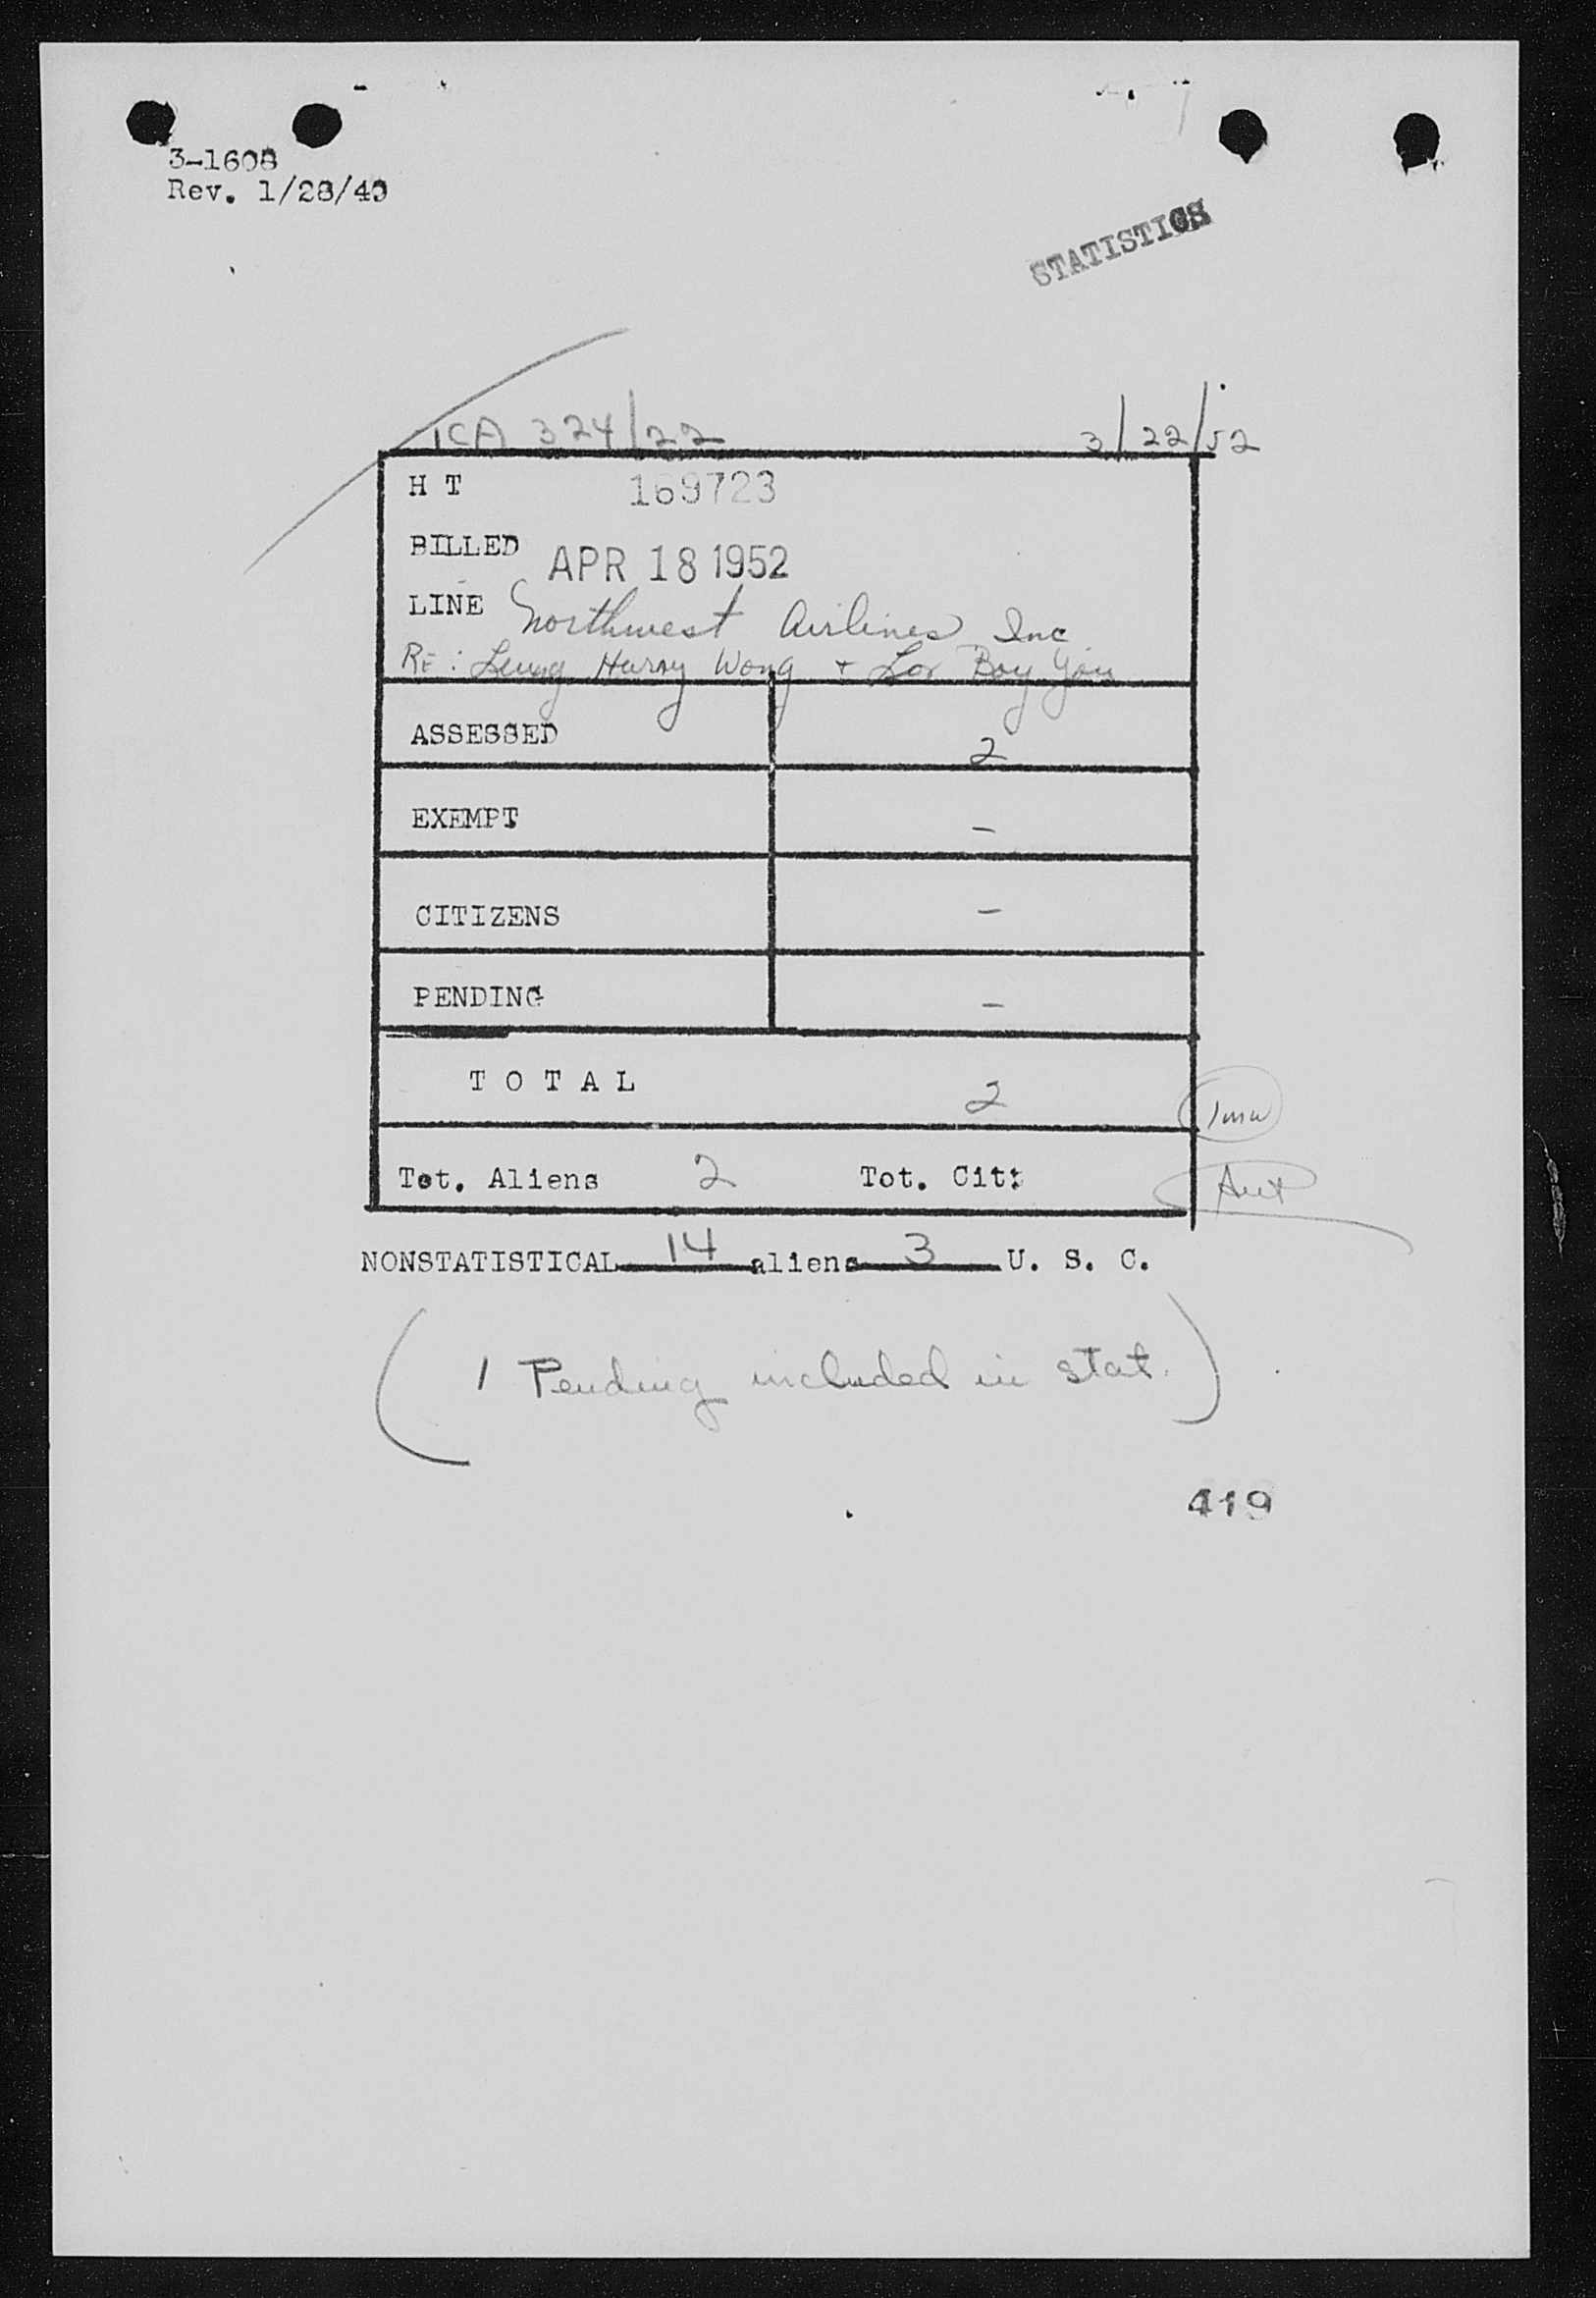 3-1608
Rev. 1/28/49
STATISTICS
ICA 324/22 3/22/52
H T 169723
BILLED APR 18 1952
LINE Northwest Airlines Inc
RE: Leung Harny Wong + Lor Boy You
ASSESSED 2
EXEMPT -
CITIZENS -
PENDING -
T O T A L 2
Tot. Aliens 2 Tot. Cit:
NONSTATISTICAL 14 aliens 3 U. S. C.
( 1 Pending included in stat. )
419